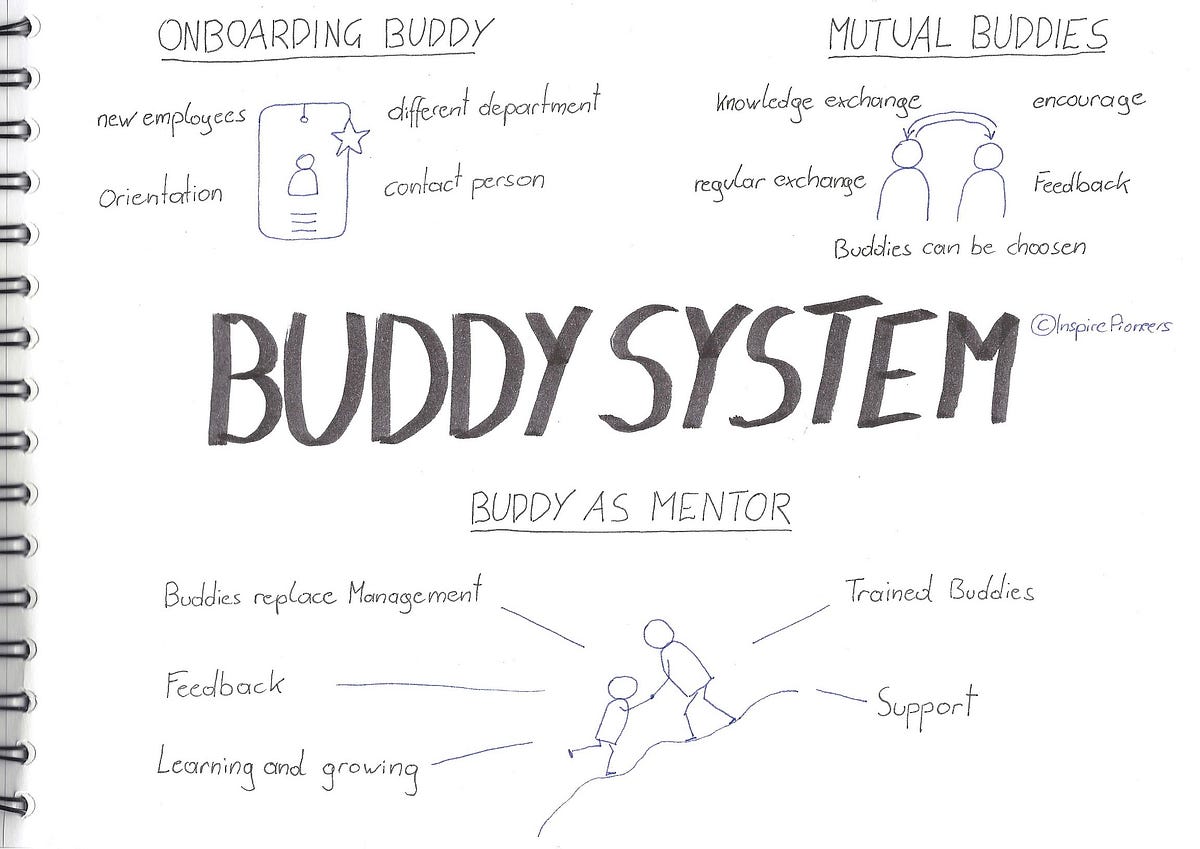 ONBOARDING BUDDY
new employees
different department
Orientation
contact person
MUTUAL BUDDIES
Knowledge exchange
encourage
regular exchange
Feedback
Buddies can be choosen
BUDDY SYSTEM
©InspirePioneers
BUDDY AS MENTOR
Buddies replace Management
Trained Buddies
Feedback
Support
Learning and growing